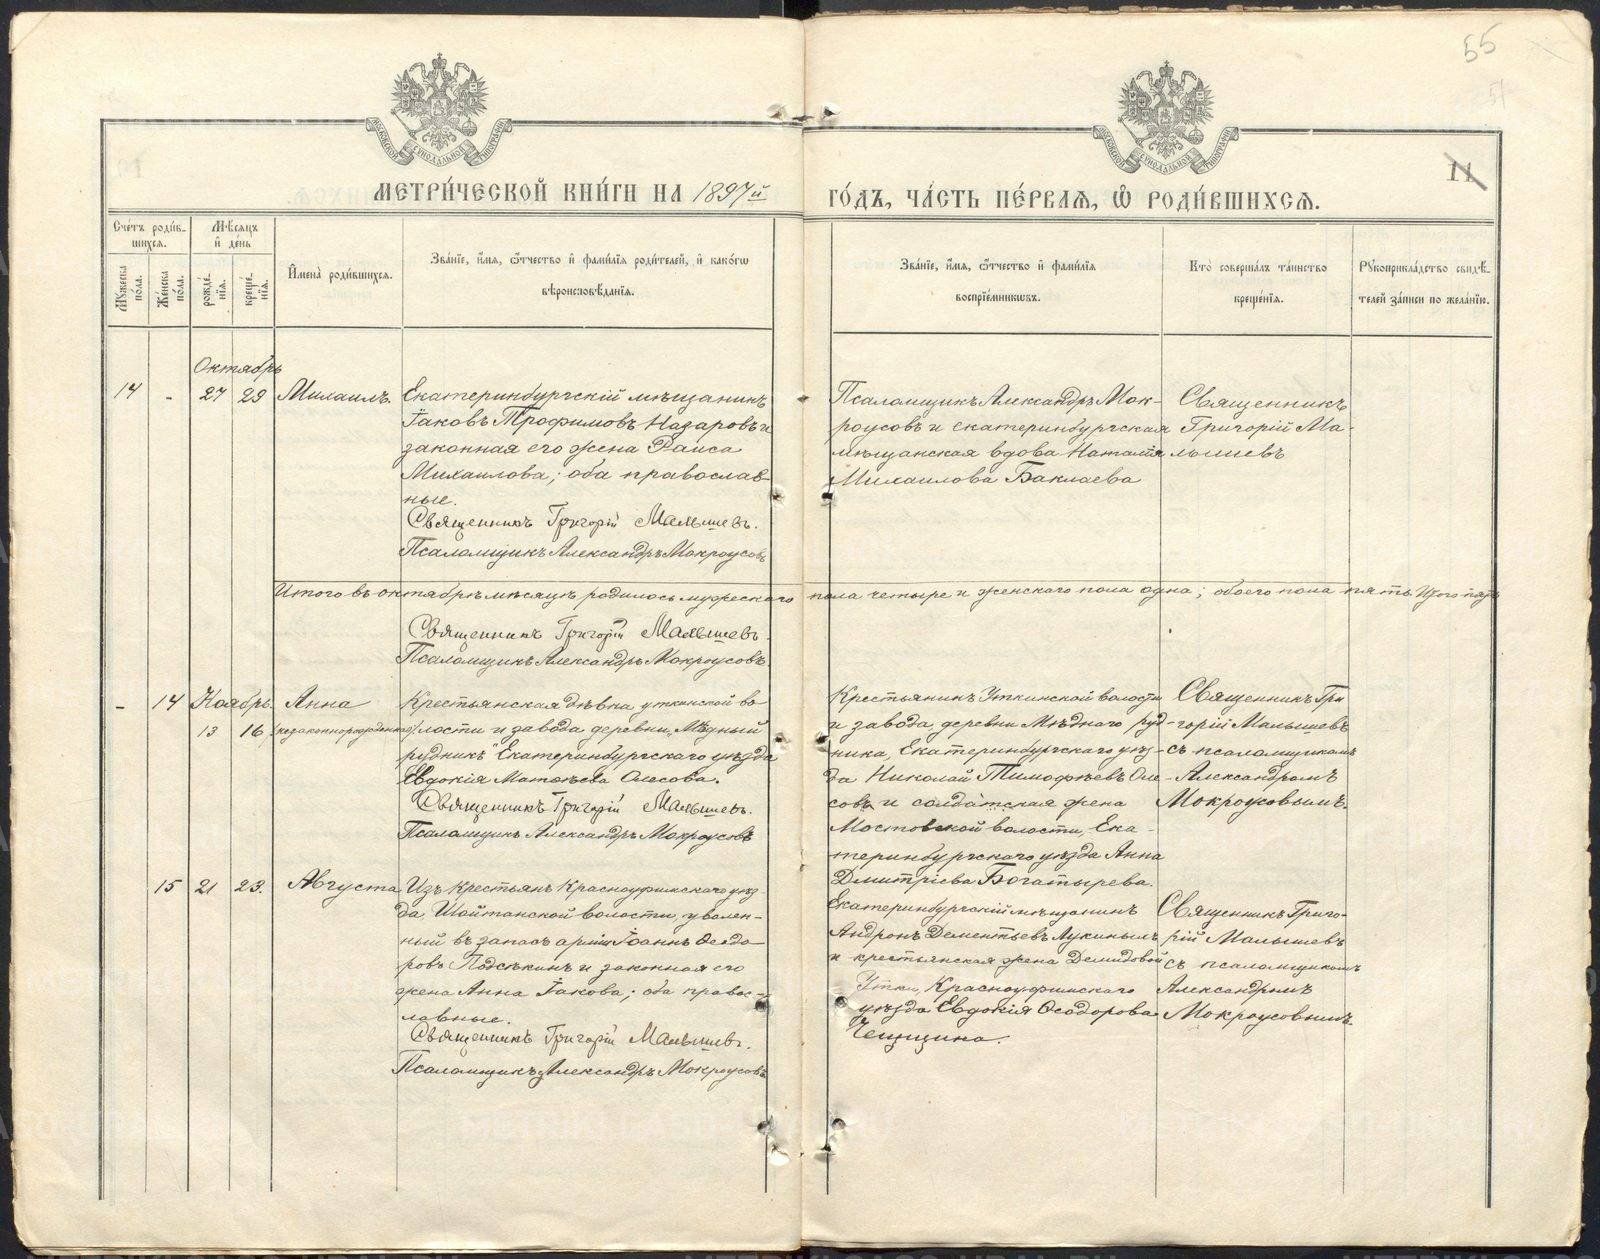 55
11
МЕТРИ́ЧЕСКОЙ КНИ́ГИ НА 1897й
ГО́ДЪ, ЧА́СТЬ ПЕ́РВАЯ, Ѡ РОДИ́ВШИХСЯ.
Сче́тъ роди́в-
шихся.
Мꙋжеска по́ла.
Же́нска по́ла.
Мѣ́сяцъ
и де́нь
рожде́-
нїя.
креще́-
нїя.
Имена̀ роди́вшихся.
Зва́нїе, и́мя, ѻ҆́тчество и фами́лїя роди́телей, и како́гѡ
вѣроисповѣ́данїя.
Зва́нїе, и́мя, ѻ҆́тчество и фами́лїя
воспрїе́мникѡвъ.
Кто̀ соверша́лъ та́инство
креще́нїя.
Рꙋкоприкла́дство свидѣ́-
телей за́писи по жела́нїю.
Октябрь
14 - 27 29 Михаилъ.
Екатеринбургскій мѣщанинъ
Іаковъ Трофимовъ Назаровъ и
законная его жена Раиса
Михаилова; оба православ-
ные.
Священникъ Григорій Малышевъ.
Псаломщикъ Александръ Мокроусовъ
Псаломщикъ Александръ Мок-
роусовъ и екатеринбургская
мѣщанская вдова Наталія
Михаилова Баклаева
Священникъ
Григорій Ма-
лышевъ
Итого въ октябрѣ мѣсяцѣ родилось мужескаго пола четыре и женскаго пола одна; обоего пола пять. Итого пять
Священникъ Григорій Малышевъ.
Псаломщикъ Александръ Мокроусовъ.
- 14 Ноябрь. Анна
13 16 (незаконнорожденная)
Крестьянская дѣвка уткинской во-
лости и завода деревни „Мѣдный
рудникъ" Екатеринбургскаго уѣзда
Евдокія Матвѣева Олесова.
Священникъ Григорій Малышевъ.
Псаломщикъ Александръ Мокроусовъ
Крестьянинъ Уткинской волости
и завода деревни Мѣднаго руд-
ника, Екатеринбургскаго уѣз-
да Николай Тимофѣевъ Оле-
совъ и солдатская жена
Мостовской волости, Ека-
теринбургскаго уѣзда Анна
Дмитріева Богатырева.
Священникъ Гри-
горій Малышевъ
съ псаломщикомъ
Александромъ
Мокроусовымъ.
15 21 23. Августа
Изъ крестьянъ Красноуфимскаго уѣз-
да, Шайтанской волости, уволен-
ный въ запасъ арміи Іоаннъ Ѳеодо-
ровъ Подсѣкинъ и законная его
жена Анна Іакова; оба право-
славные.
Священникъ Григорій Малышевъ.
Псаломщикъ Александръ Мокроусовъ
Екатеринбургскій мѣщанинъ
Андронъ Дементьевъ Лукиныхъ
и крестьянская жена Демидовой
Утки, Красноуфимскаго
уѣзда Евдокія Ѳеодорова
Священникъ Григо-
рій Малышевъ
съ псаломщикомъ
Александромъ
Мокроусовымъ.